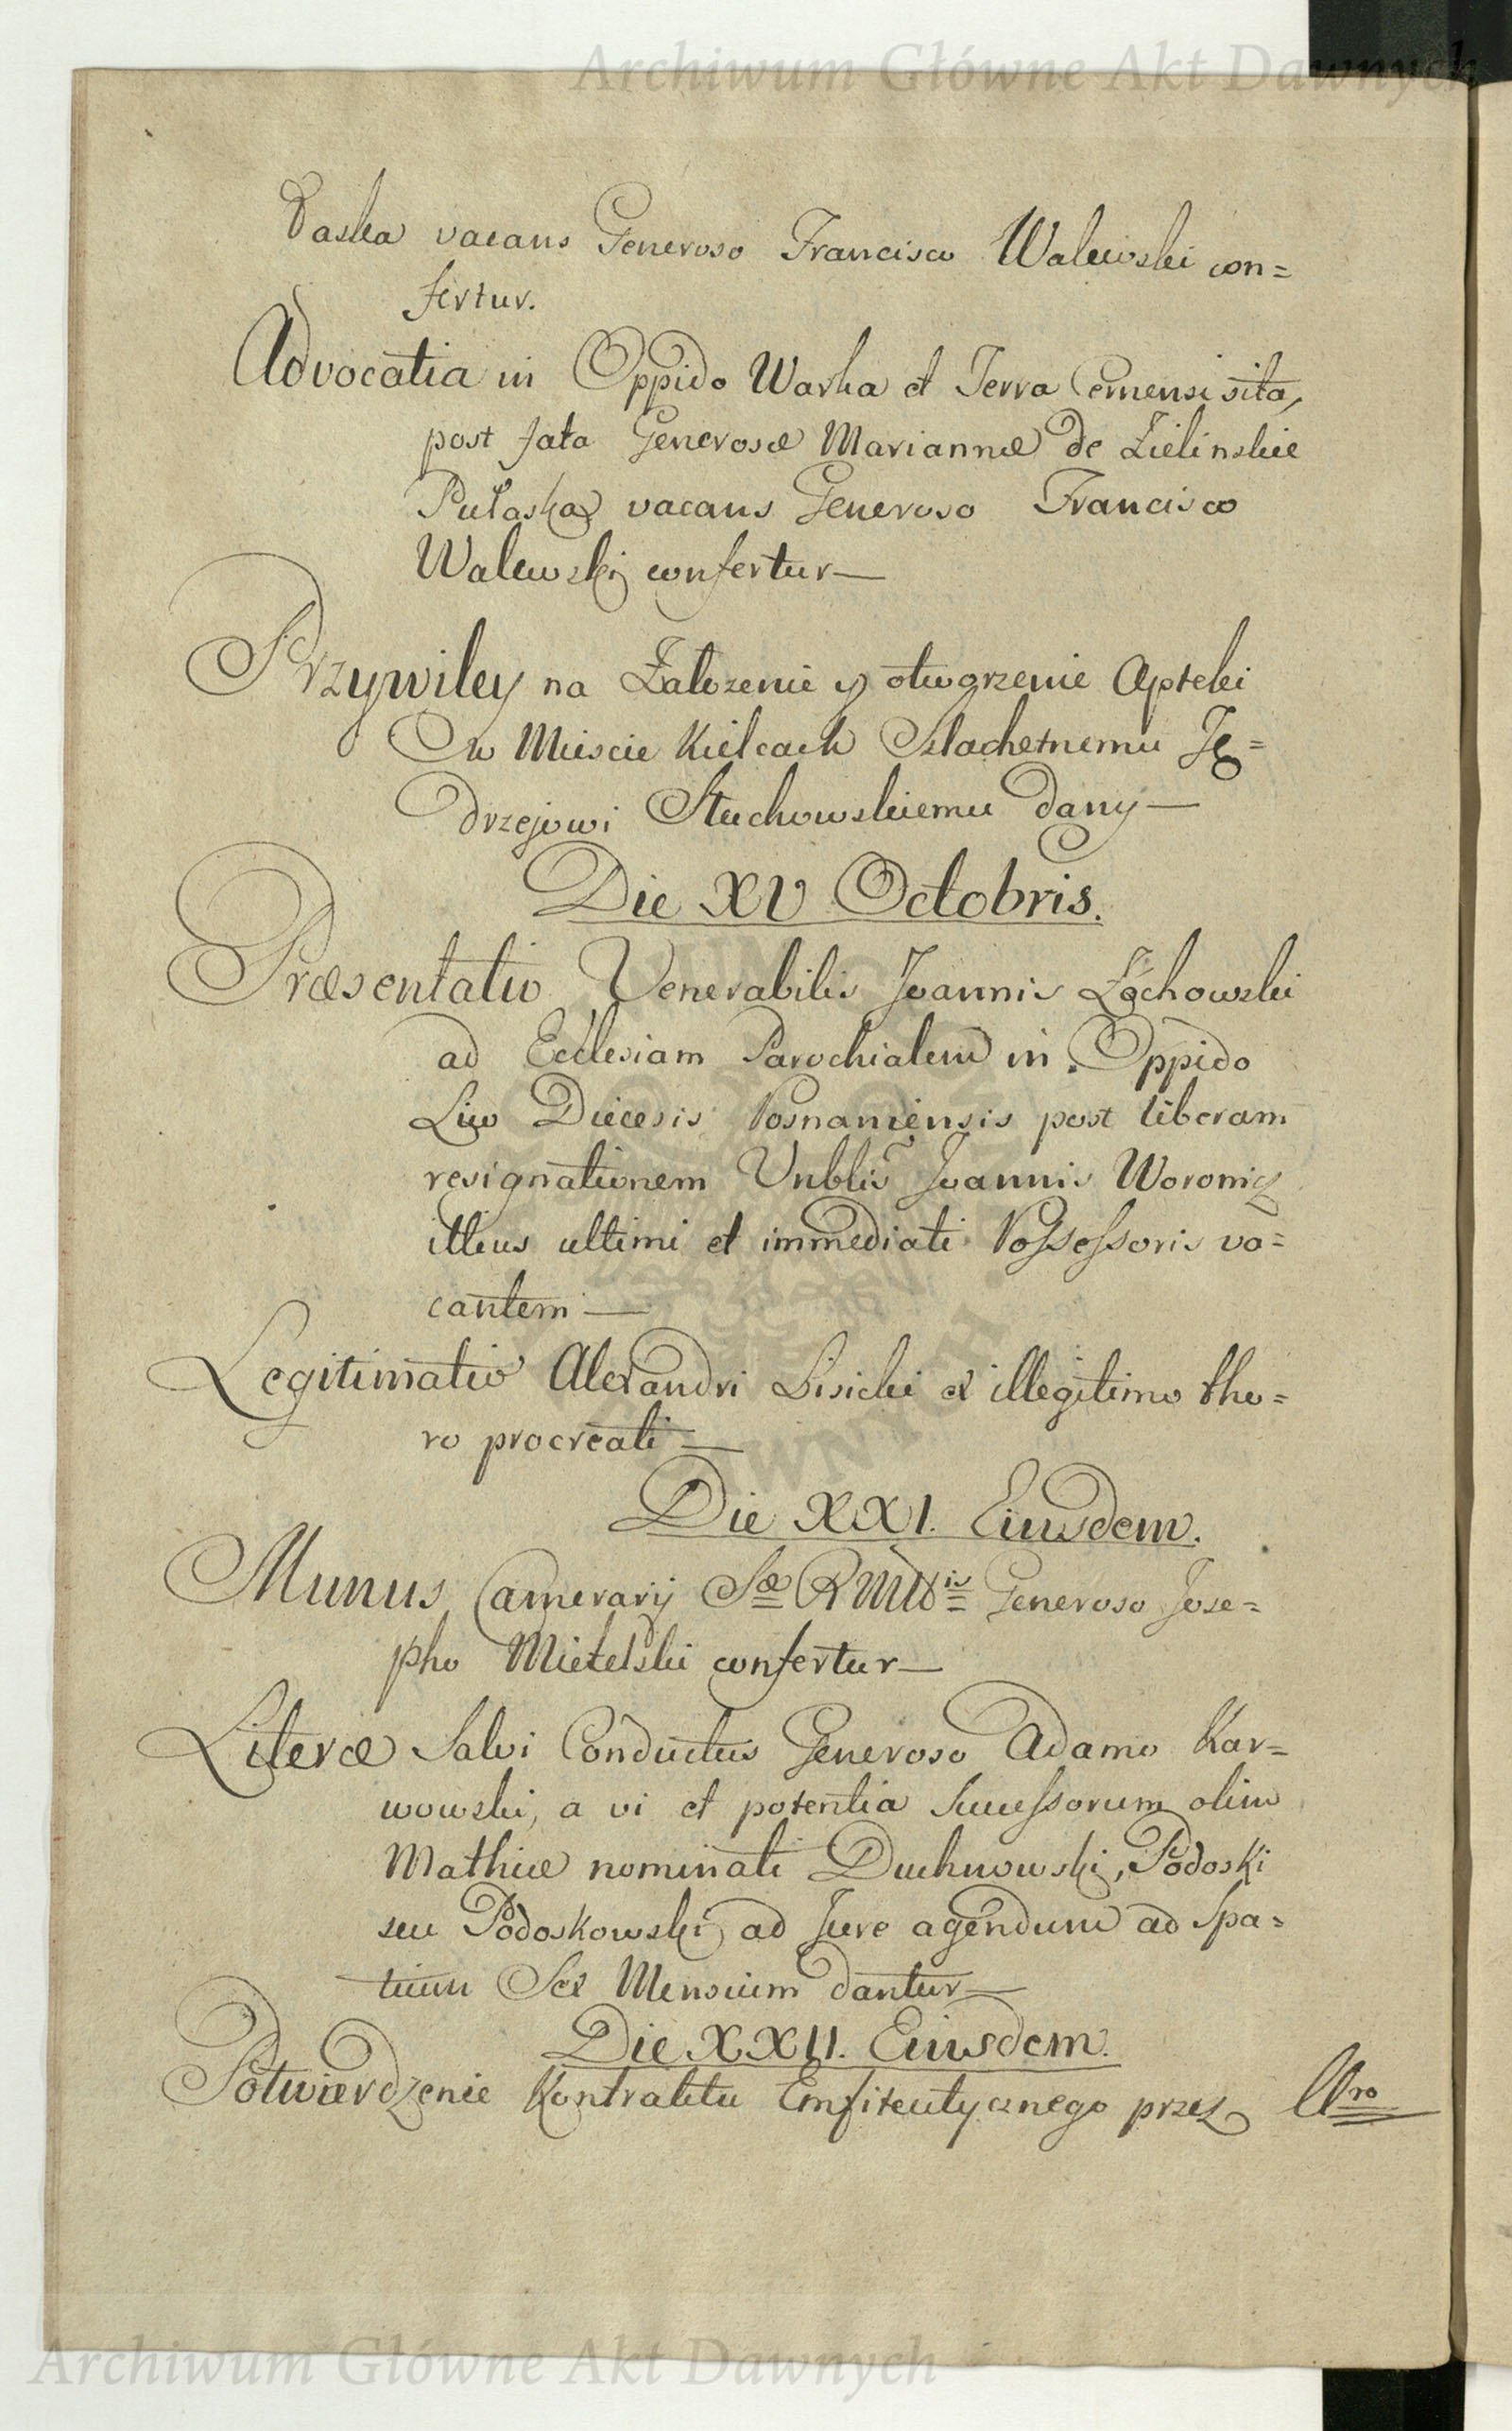 Archiwum Główne Akt Dawnych
vacans Generoso Francisco Walewski con=
fertur.
Advocatia in Oppido Warka et Terra Cernensi sita,
post fata Generosæ Mariannæ de Zielinskie
Pułaska vacans Generoso Francisco
Walewski confertur—
Przywiley na Załozenie y otworzenie Apteki
w Miescie Kielcach Szlachetnemu Ję=
drzejowi Stuchowskiemu dany—
Die XV Octobris.
Præsentatio Venerabilis Joannis Łochowski
ad Ecclesiam Parochialem in Oppido
Liw Diecesis Posnaniensis post liberam
resignationem Vnblis Joannis Woronicz
illius ultimi et immediati Possessoris va=
cantem—
Legitimatio Alexandri Lisicki ex illegitimo tho=
ro procreati—
Die XXI. Eiusdem.
Munus Camerarij Sæ RMttis Generoso Jose=
pho Mielelski confertur—
Literæ Salvi Conductus Generoso Adamo Kar=
wowski, a vi et potentia Successorum olim
Mathiæ nominati Duchnowski, Podoski
seu Podoskowski ad Jure agendum ad Spa=
tium Sex Mensium dantur—
Die XXII. Eiusdem.
Potwierdzenie Kontraktu Emfiteutycznego przez Uro
Archiwum Główne Akt Dawnych